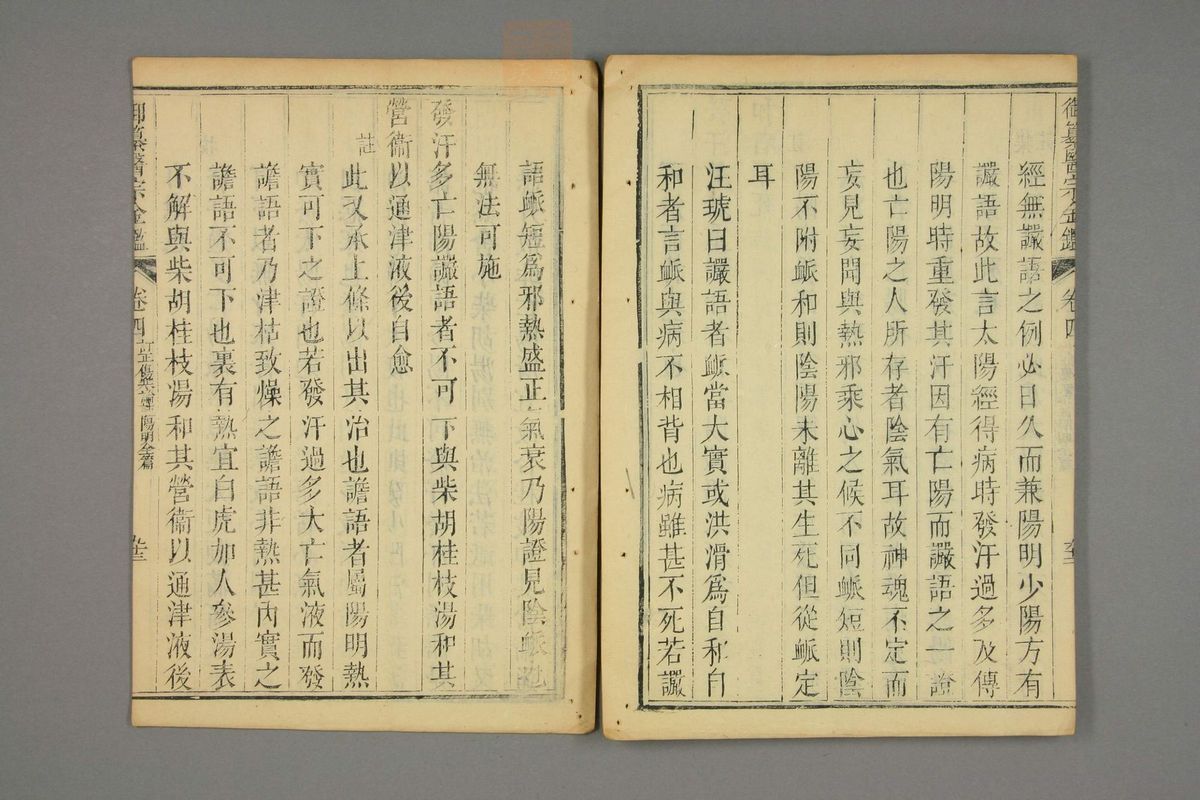 御纂醫宗金鑑 卷四
經無讝語之例必日久而兼陽明少陽方有
讝語故此言太陽經得病時發汗過多及傳
陽明時重發其汗因有亡陽而讝語之一證
也亡陽之人所存者陰氣耳故神魂不定而
妄見妄聞與熱邪乘心之候不同䘑短則陰
陽不附䘑和則陰陽未離其生死但從䘑定
耳
汪琥曰讝語者䘑當大實或洪滑爲自和自
和者言䘑與病不相背也病雖甚不死若讝
語䘑短爲邪熱盛正氣衰乃陽證見陰䘑也
無法可施
發汗多亡陽讝語者不可下與柴胡桂枝湯和其
營衞以通津液後自愈
註 此又承上條以出其治也譫語者屬陽明熱
實可下之證也若發汗過多大亡氣液而發
譫語者乃津枯致燥之譫語非熱甚內實之
譫語不可下也裏有熱宜白虎加人參湯表
不解與柴胡桂枝湯和其營衞以通津液後
御纂醫宗金鑑 卷四 陽明全篇